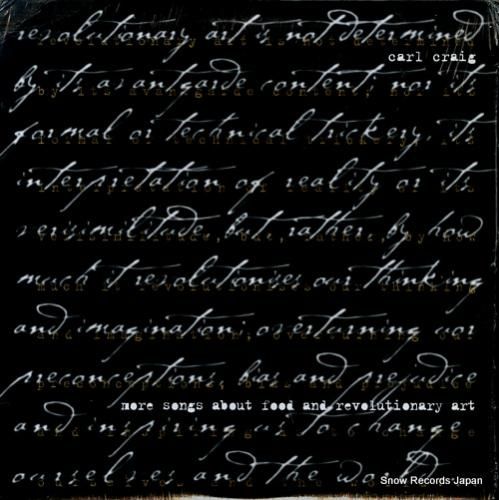 revolutionary art is not determined
carl craig
by its avantgarde content, nor its
formal or technical trickery, its
interpretation of reality or its
verisimilitude, but, rather, by how
much it revolutionises our thinking
and imagination; overturning our
preconceptions, bias and prejudice
more songs about food and revolutionary art
and inspiring us to change
ourselves and the world
Snow Records Japan